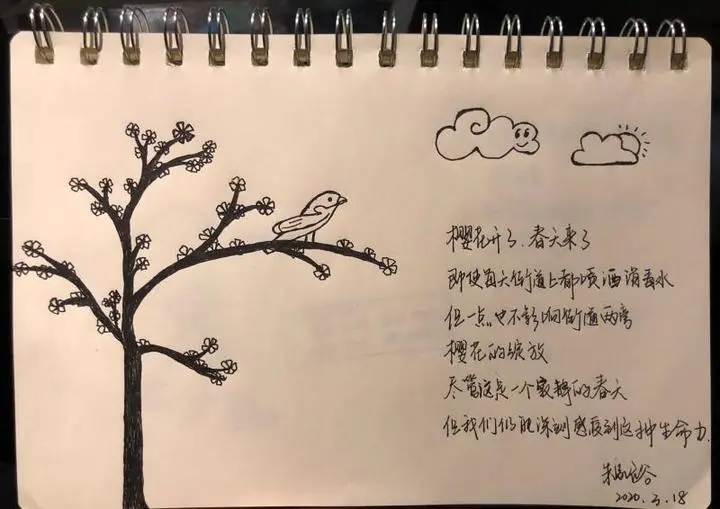 樱花开了、春天来了
即使每天街道上都喷洒消毒水
但一点也不影响街道两旁
樱花的绽放
尽管这是一个寂静的春天
但我们仍能深刻感受到这种生命力.
2020.3.18